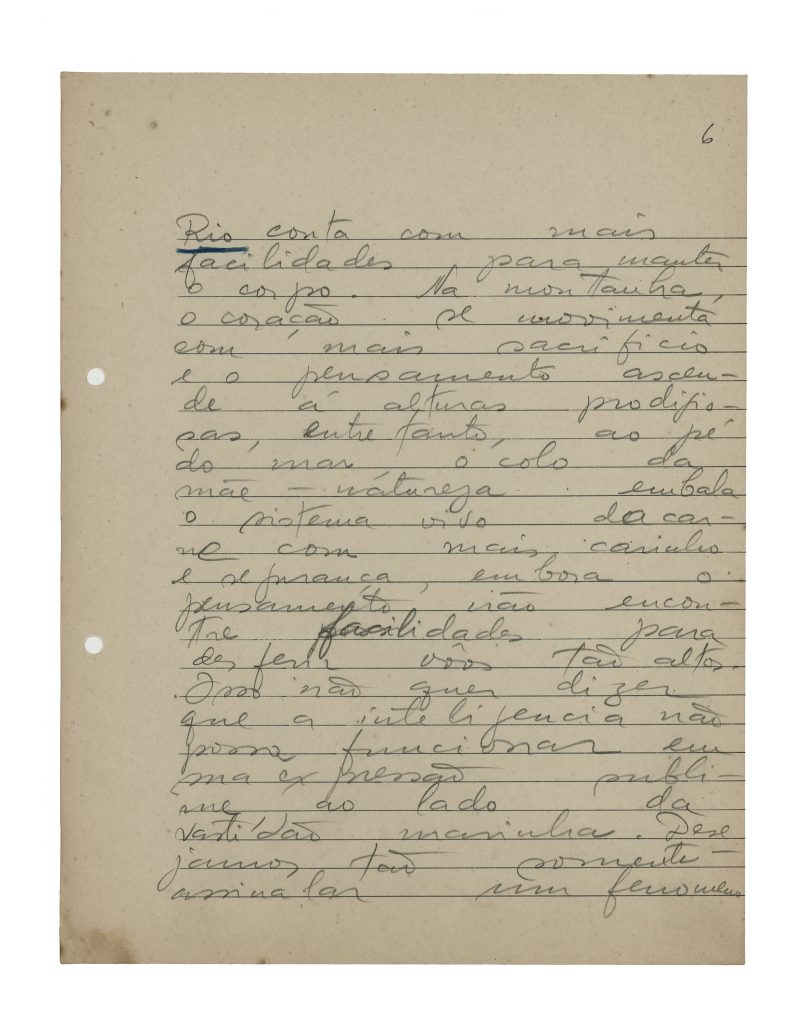 6
Rio conta com mais
facilidades para manter
o corpo. Na montanha,
o coração se movimenta
com mais sacrificio
e o pensamento ascen-
de á alturas prodigio-
sas, entretanto, ao pé
do mar, o colo da
mãe-natureza embala
o sistema vivo da car-
ne com mais carinho
e segurança, embora o
pensamento não encon-
tre facilidades para
desferir vôos tão altos.
Isso não quer dizer
que a inteligencia não
possa funcionar em
sua expressão subli-
me ao lado da
vastidão marinha. Dese-
jamos tão somente
assinalar um fenomeno